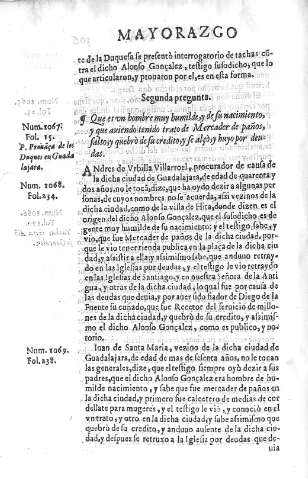 MAYORAZGO
te de la Duquesa se presentò interrogatorio de tachas cõ-
tra el dicho Alonso Gonçalez, testigo susodicho, que lo
que articularon, y prouaron por el, es en esta forma.
Segunda pregunta.
Num. 1067.
Fol. 15.
P. Prouãça de los
Duques en Guada
lajara.
Num. 1068.
Fol. 234.
Num. 1069.
Fol. 238.
¶ Que es vn hombre muy humilde, y de su nacimiento,
y que auiendo tenido trato de Mercader de paños,
faltò y quebrò de su credito, y se alçò y huyo por deu-
das.
ANdres de Vrbina Villarroel, procurador de causas de
la dicha ciudad de Guadalajara, de edad de quarenta y
dos años, no le toca, dize, que ha oydo dezir a algunas per-
sonas, de cuyos nombres no se acuerda, assi vezinos de la
dicha ciudad, como de la villa de Hita, donde dizen es el
origen del dicho Alonso Gonçalez, que el susodicho es de
gente muy humilde de su nacimiento; y el testigo sabe, y
vio, que fue Mercader de paños en la dicha ciudad, por-
que le vio tener tienda publica en la plaça de la dicha ciu-
dad, y assistir a ella; y assimismo sabe, que anduuo retray-
do en las Iglesias por deudas, y el testigo le vio retraydo
en las Iglesias de Santiago, y en nuestra Señora de la Anti-
gua, y otras de la dicha ciudad, lo qual fue por causa de
las deudas que deuia, y por auer sido fiador de Diego de la
Fuente su cuñado, que fue Receptor del seruicio de millo-
nes de la dicha ciudad, y quebrò de su credito, y assimis-
mo el dicho Alonso Gonçalez, como es publico, y no-
torio.
Iuan de Santa Maria, vezino de la dicha ciudad de
Guadalajara, de edad de mas de sesenta años, no le tocan
las generales, dize, que el testigo siempre oyò dezir a sus
padres, que el dicho Alonso Gonçalez era hombre de hu-
milde nacimiento, y sabe que fue mercader de paños en
la dicha ciudad, y primero fue calcetero de medias de cor
dellate para mugeres, y el testigo le vio, y conociò en el vn
trato, y otro en la dicha ciudad, y sabe assimismo que
quebrò de su credito, y anduuo ausente de la dicha ciu-
dad, y despues se retruxo a la Iglesia por deudas que de-
uia